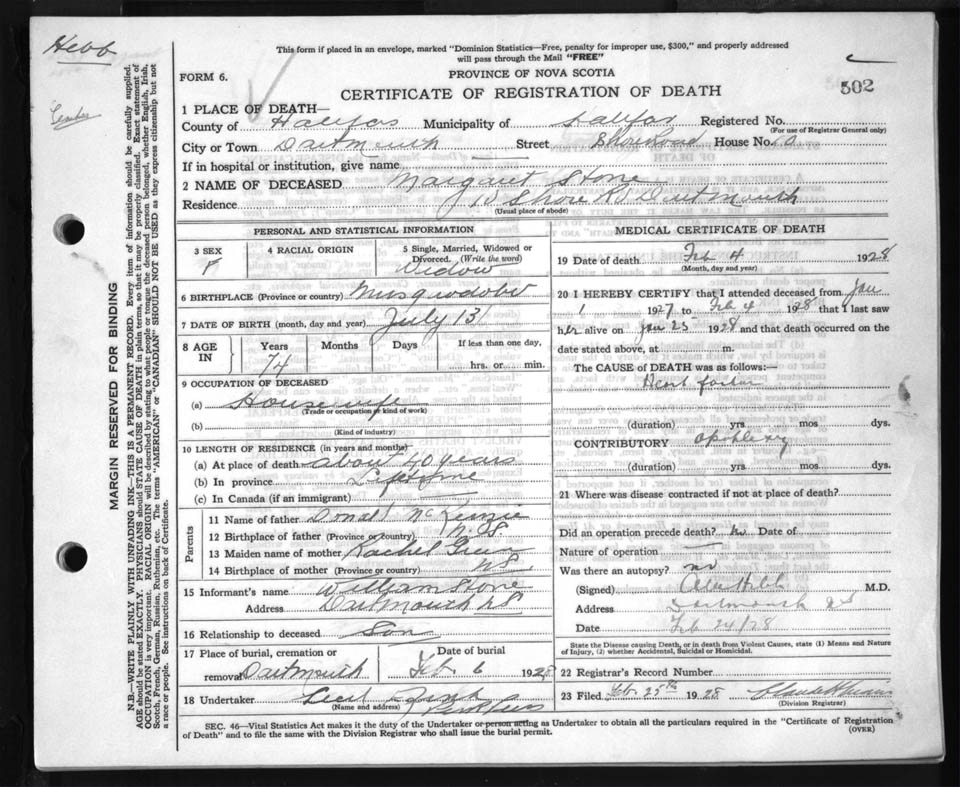 Hebb
This form if placed in an envelope, marked "Dominion Statistics—Free, penalty for improper use, $300," and properly addressed
will pass through the Mail "FREE"
FORM 6.
PROVINCE OF NOVA SCOTIA
502
CERTIFICATE OF REGISTRATION OF DEATH
MARGIN RESERVED FOR BINDING
N.B.—WRITE PLAINLY WITH UNFADING INK—THIS IS A PERMANENT RECORD. Every item of information should be carefully supplied.
AGE should be stated EXACTLY. PHYSICIANS should STATE CAUSE OF DEATH in plain terms, so that it may be properly classified. Exact statement of
OCCUPATION is very important. RACIAL ORIGIN will be described by stating to what people or tongue the deceased person belonged, whether English, Irish,
Scotch, French, German, Russian, Ruthenian, etc. The terms "AMERICAN" or "CANADIAN" SHOULD NOT BE USED as they express citizenship but not
a race or people. See instructions on back of Certificate.
1 PLACE OF DEATH—
County of Halifax Municipality of Halifax Registered No.
(For use of Registrar General only)
City or Town Dartmouth Street Shore Road House No. 10
If in hospital or institution, give name
2 NAME OF DECEASED Margaret Stone
Residence 10 Shore Rd Dartmouth
(Usual place of abode)
PERSONAL AND STATISTICAL INFORMATION
3 SEX
F
4 RACIAL ORIGIN
5 Single, Married, Widowed or
Divorced. (Write the word)
Widow
6 BIRTHPLACE (Province or country) Musquodobit
7 DATE OF BIRTH (month, day and year) July 13
8 AGE IN
Years Months Days If less than one day,
74 hrs. or min.
9 OCCUPATION OF DECEASED
(a) Housewife
(Trade or occupation or kind of work)
(b)
(Kind of industry)
10 LENGTH OF RESIDENCE (in years and months)
(a) At place of death about 40 years
(b) In province Life time
(c) In Canada (if an immigrant)
Parents
11 Name of father Donald McKenzie
12 Birthplace of father (Province or country) N.S.
13 Maiden name of mother Rachel
14 Birthplace of mother (Province or country) N.S.
15 Informant's name William Stone
Address Dartmouth NS
16 Relationship to deceased Son
17 Place of burial, cremation or Date of burial
removal Dartmouth Feb 6 1928
18 Undertaker Cecil
(Name and address)
MEDICAL CERTIFICATE OF DEATH
19 Date of death Feb 4 1928
(Month, day and year)
20 I HEREBY CERTIFY that I attended deceased from Jan
1 1927 to Feb 4 1928 that I last saw
her alive on Jan 25 1928 and that death occurred on the
date stated above, at m.
The CAUSE of DEATH was as follows:—
Heart failure
(duration) yrs. mos. dys.
CONTRIBUTORY
(duration) yrs. mos. dys.
21 Where was disease contracted if not at place of death?
Did an operation precede death? No Date of
Nature of operation
Was there an autopsy? no
(Signed) M.D.
Address Dartmouth NS
Date Feb 24/28
State the Disease causing Death, or in death from Violent Causes, state (1) Means and Nature
of Injury, (2) whether Accidental, Suicidal or Homicidal.
22 Registrar's Record Number
23 Filed Feb. 25th 1928
(Division Registrar)
SEC. 46—Vital Statistics Act makes it the duty of the Undertaker or person acting as Undertaker to obtain all the particulars required in the "Certificate of Registration
of Death" and to file the same with the Division Registrar who shall issue the burial permit.
(OVER)